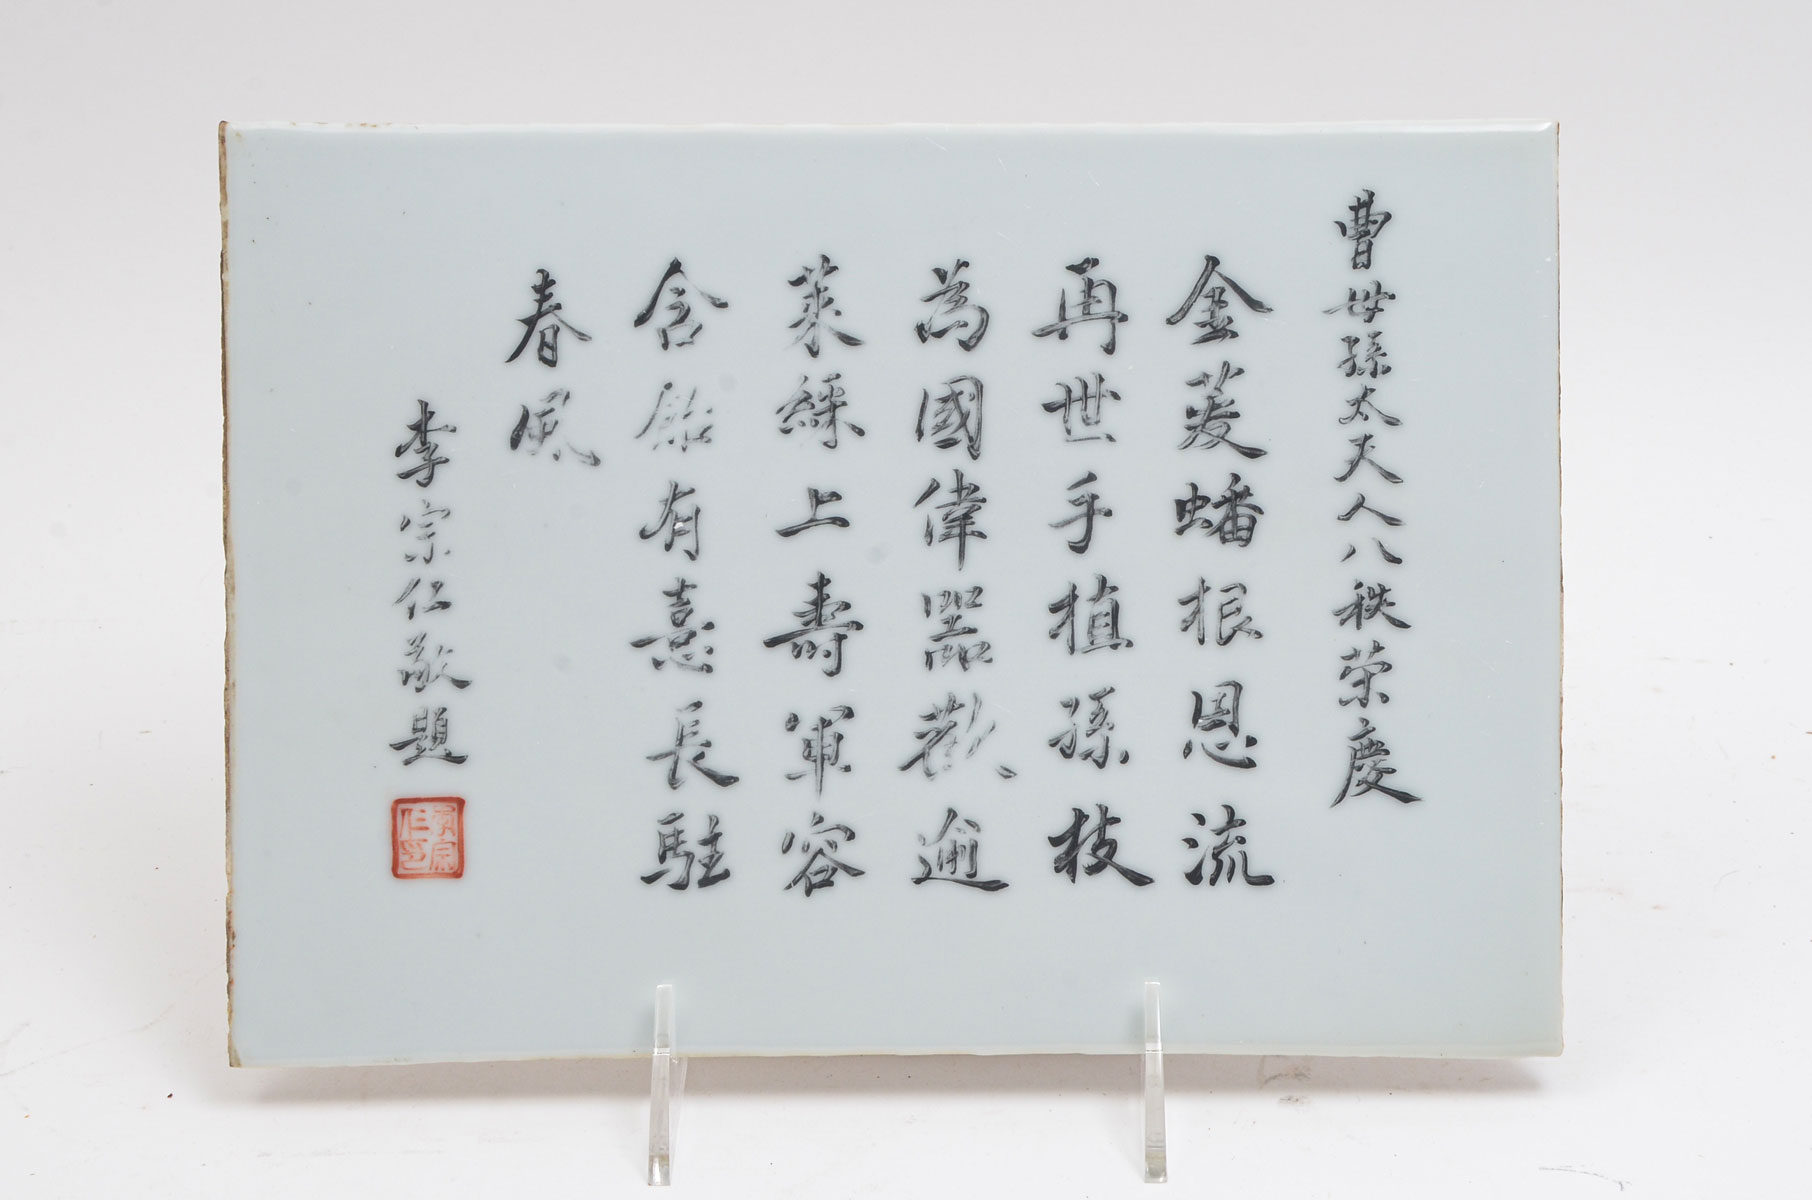 曹母孫太夫人八秩榮慶
金菱蟠根恩流
再世手植孫枝
為國偉器歡逾
萊綵上壽軍容
含飴有意長駐
春風
李宗仁敬題
李宗仁印